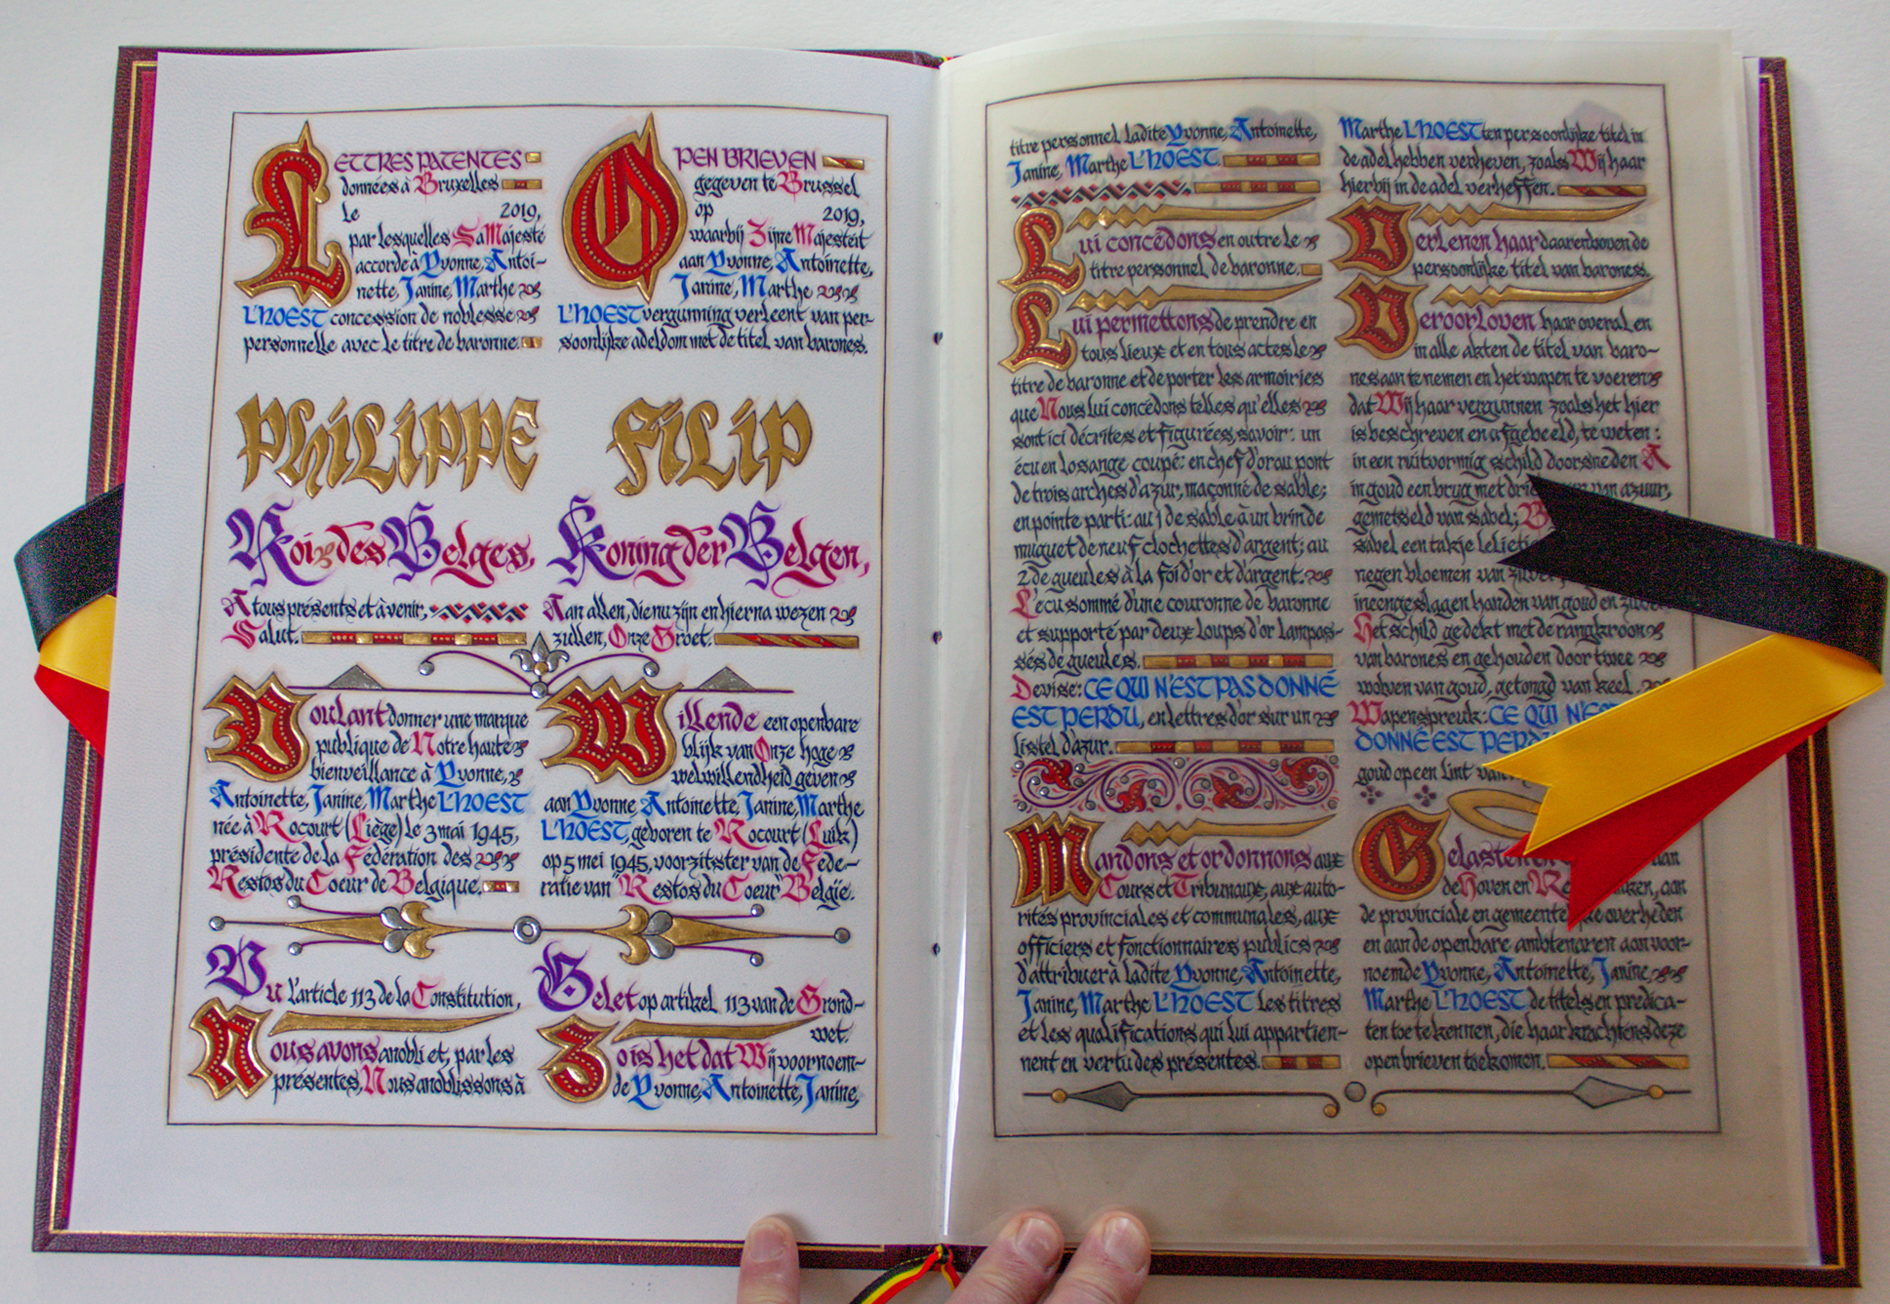 LETTRES PATENTES
données à Bruxelles
le 2019,
par lesquelles Sa Majesté
accorde à Yvonne, Antoi-
nette, Janine, Marthe
L'HOEST concession de noblesse
personnelle avec le titre de baronne.
OPEN BRIEVEN
gegeven te Brussel
op 2019,
waarbij Zijne Majesteit
aan Yvonne, Antoinette,
Janine, Marthe
L'HOEST vergunning verleent van per-
soonlijke adeldom met de titel van barones.
PHILIPPE
Roi des Belges,
A tous présents et à venir,
Salut.
FILIP
Koning der Belgen,
Aan allen, die nu zijn en hierna wezen
zullen, Onze Groet.
Voulant donner une marque
publique de Notre haute
bienveillance à Yvonne,
Antoinette, Janine, Marthe L'HOEST
née à Rocourt (Liège) le 3 mai 1945,
présidente de la Fédération des
Restos du Coeur de Belgique.
Willende een openbare
blijk van Onze hoge
welwillendheid geven
aan Yvonne, Antoinette, Janine, Marthe
L'HOEST, geboren te Rocourt (Luik)
op 5 mei 1945, voorzitster van de Fede-
ratie van "Restos du Coeur" België.
Vu l'article 113 de la Constitution,
Nous avons anobli et, par les
présentes, Nous anoblissons à
Gelet op artikel 113 van de Grond-
wet.
Zo is het dat Wij voornoem-
de Yvonne, Antoinette, Janine,
titre personnel ladite Yvonne, Antoinette,
Janine, Marthe L'HOEST.
Lui concédons en outre le
titre personnel de baronne.
Lui permettons de prendre en
tous lieux et en tous actes le
titre de baronne et de porter les armoiries
que Nous lui concédons telles qu'elles
sont ici décrites et figurées, savoir: un
écu en losange coupé: en chef d'or au pont
de trois arches d'azur, maçonné de sable;
en pointe parti: au 1 de sable à un brin de
muguet de neuf clochettes d'argent; au
2 de gueules à la foi d'or et d'argent.
L'écu sommé d'une couronne de baronne
et supporté par deux loups d'or lampas-
sés de gueules.
Devise: CE QUI N'EST PAS DONNÉ
EST PERDU, en lettres d'or sur un
listel d'azur.
Mandons et ordonnons aux
Cours et Tribunaux, aux auto-
rités provinciales et communales, aux
officiers et fonctionnaires publics
d'attribuer à ladite Yvonne, Antoinette,
Janine, Marthe L'HOEST les titres
et les qualifications qui lui appartien-
nent en vertu des présentes.
Marthe L'HOEST ten persoonlijke titel in
de adel hebben verheven, zoals Wij haar
hierbij in de adel verheffen.
Verlenen haar daarenboven de
persoonlijke titel van barones.
Veroorloven haar overal en
in alle akten de titel van baro-
nes aan te nemen en het wapen te voeren
dat Wij haar vergunnen zoals het hier
is beschreven en afgebeeld, te weten:
in een ruitvormig schild doorsneden A
in goud een brug met drie van azuur,
gemetseld van sabel; B
sabel een takje
negen bloemen van
ineengeslagen handen van goud en
Het schild gedekt met de rangkroon
van barones en gehouden door twee
wolven van goud, getongd van keel.
Wapenspreuk: CE QUI
DONNÉ EST
goud op een lint
Gelasten
de Hoven en aan
de provinciale en overheden
en aan de openbare ambtenaren aan voor-
noemde Yvonne, Antoinette, Janine
Marthe L'HOEST de titels en predica-
ten toe te kennen, die haar krachtens deze
open brieven toekomen.